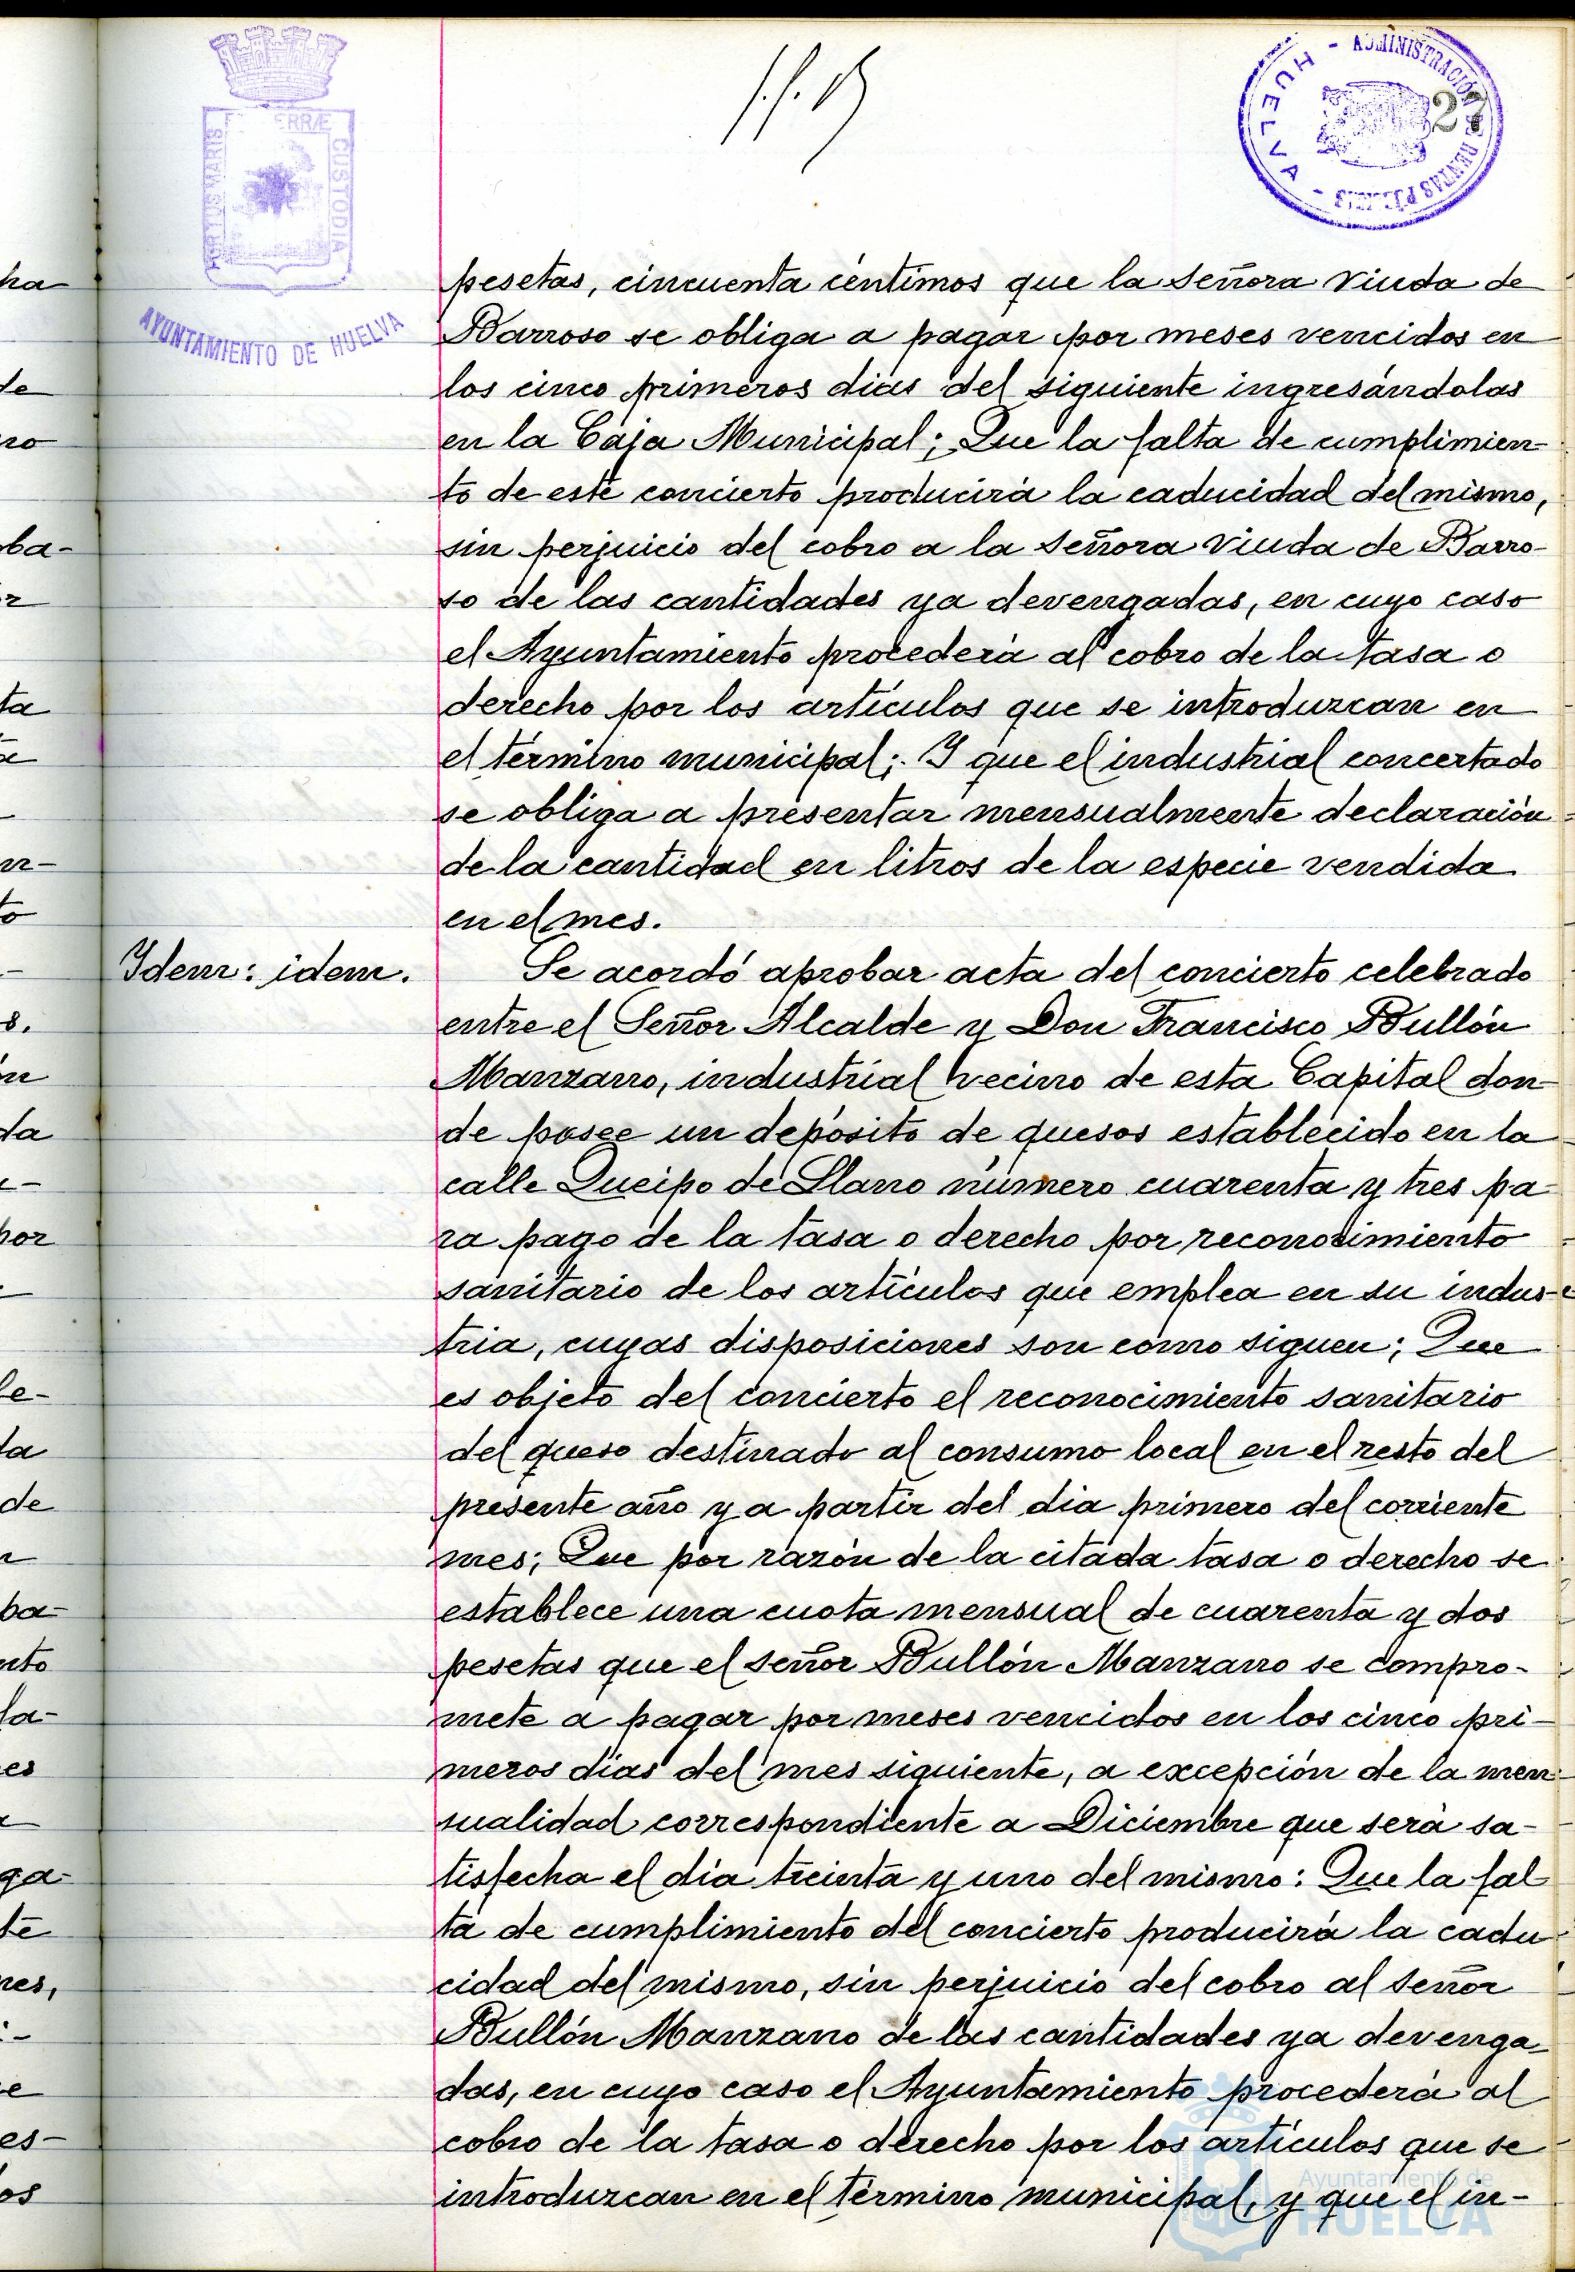 27
HUELVA - ADMINISTRACIÓN DE RENTAS PÚBLICAS -
PORTUS MARIS ERRÆ CUSTODIA
AYUNTAMIENTO DE HUELVA
pesetas, cincuenta céntimos que la señora Viuda de
Barroso se obliga a pagar por meses vencidos en
los cinco primeros dias del siguiente ingresándolas
en la Caja Municipal; Que la falta de cumplimien-
to de este concierto producirá la caducidad del mismo,
sin perjuicio del cobro a la señora Viuda de Barro-
so de las cantidades ya devengadas, en cuyo caso
el Ayuntamiento procederá al cobro de la tasa o
derecho por los artículos que se introduzcan en
el término municipal; Y que el industrial concertado
se obliga a presentar mensualmente declaración
de la cantidad en litros de la especie vendida
en el mes.
Idem: idem.
Se acordó aprobar acta del concierto celebrado
entre el Señor Alcalde y Don Francisco Bullón
Manzano, industrial vecino de esta Capital don-
de posee un depósito de quesos establecido en la
calle Queipo de Llano número cuarenta y tres pa-
ra pago de la tasa o derecho por reconocimiento
sanitario de los artículos que emplea en su indus-
tria, cuyas disposiciones son como siguen; Que
es objeto del concierto el reconocimiento sanitario
del queso destinado al consumo local en el resto del
presente año y a partir del dia primero del corriente
mes; Que por razón de la citada tasa o derecho se
establece una cuota mensual de cuarenta y dos
pesetas que el señor Bullón Manzano se compro-
mete a pagar por meses vencidos en los cinco pri-
meros días del mes siguiente, a excepción de la men-
sualidad correspondiente a Diciembre que será sa-
tisfecha el día treinta y uno del mismo: Que la fal-
ta de cumplimiento del concierto producirá la cadu-
cidad del mismo, sin perjuicio del cobro al señor
Bullón Manzano de las cantidades ya devenga-
das, en cuyo caso el Ayuntamiento procederá al
cobro de la tasa o derecho por los artículos que se
introduzcan en el término municipal, y que el in-
Ayuntamiento de
HUELVA